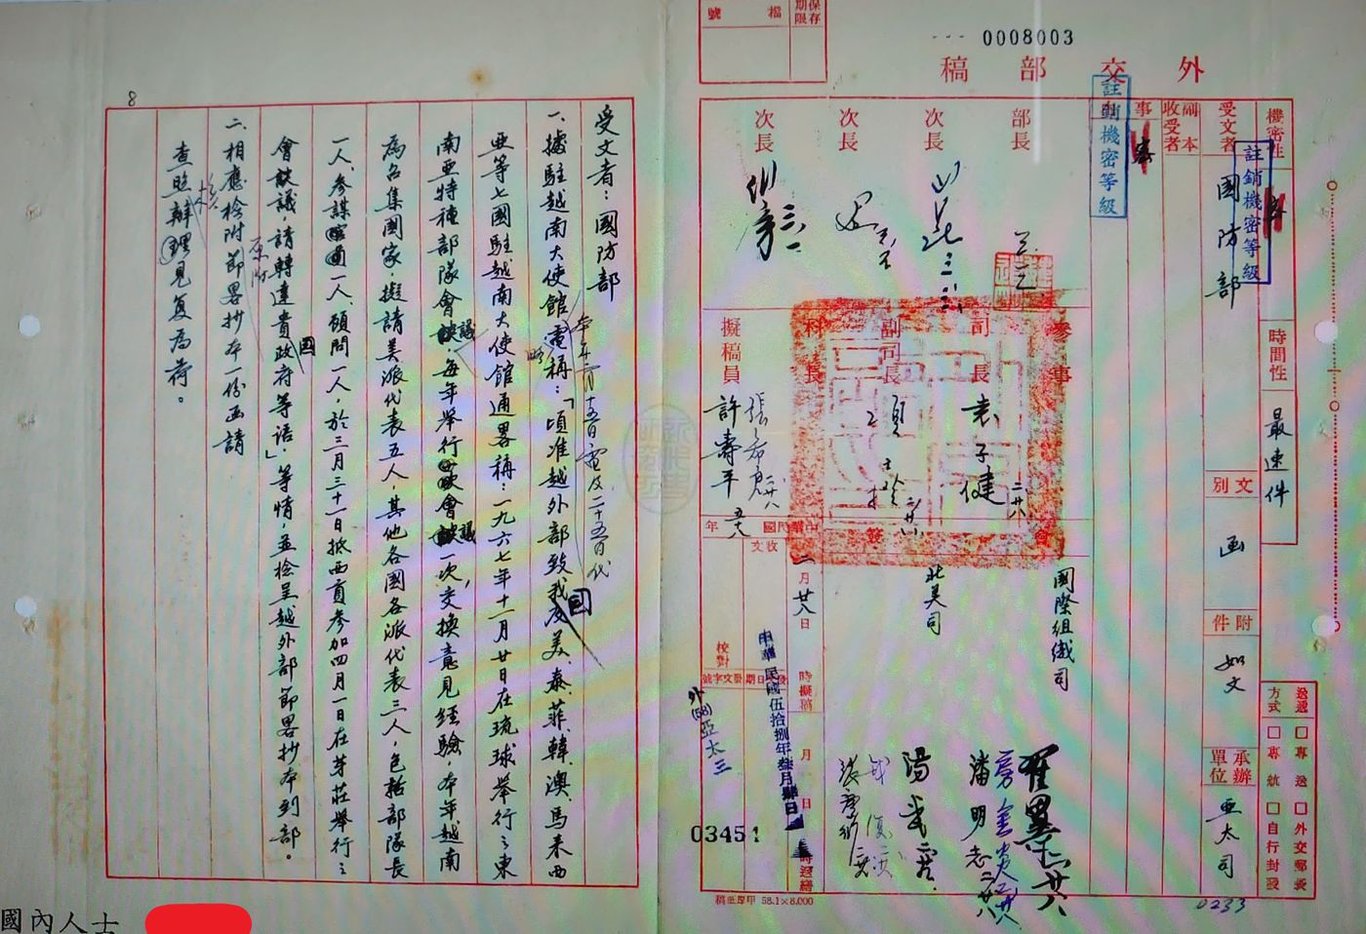 0008003
外交部稿
檔號
保存期限
機密性
註銷機密等級
受文者
國防部
副本收受者
事
註銷機密等級
時間性
最速件
文別
函
附件
如文
承辦單位
亞太司
送遞方式
□專送□外交郵袋
□專航□自行封發
部長
次長
次長
次長
參事
司長
袁子健
副司長
科長
擬稿員
許壽平
國際組織司
北美司
中華民國
五八年
二月廿八日
時擬稿
月
日
時逕繕
收文
校對
發文字號
中華民國伍拾捌年叁月
外(58)亞太三
03451
潘明志
0233
稿至厚甲 58.1×8,000
8
受文者:國防部
一、據駐越南大使館
本年二月十五日電及二十五日代
電稱:「頃准越外部致我及美、泰、菲、韓、澳、馬來西
亞等七國駐越南大使館通畧稱:一九六七年十一月廿日在琉球舉行之東
南亞特種部隊會議,每年舉行會議一次,交換意見經驗,本年越南
為召集國家,擬請美派代表五人,其他各國各派代表三人,包括部隊長
一人、參謀一人、顧問一人,於三月三十一日抵西貢參加四月一日在芽莊舉行之
會議,請轉達貴國政府等語」等情,並檢呈越外部節畧抄本到部。
二、相應檢附節畧抄本一份函請
查照辦理見复為荷。
國內人士